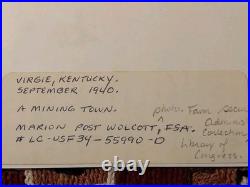 VIRGIE, KENTUCKY.
SEPTEMBER 1940.
A MINING TOWN.
photo. Farm Secur
Adminis
MARION POST WOLCOTT, FSA.
Collection
# LC-USF34-55990-D
Library of
Congress.